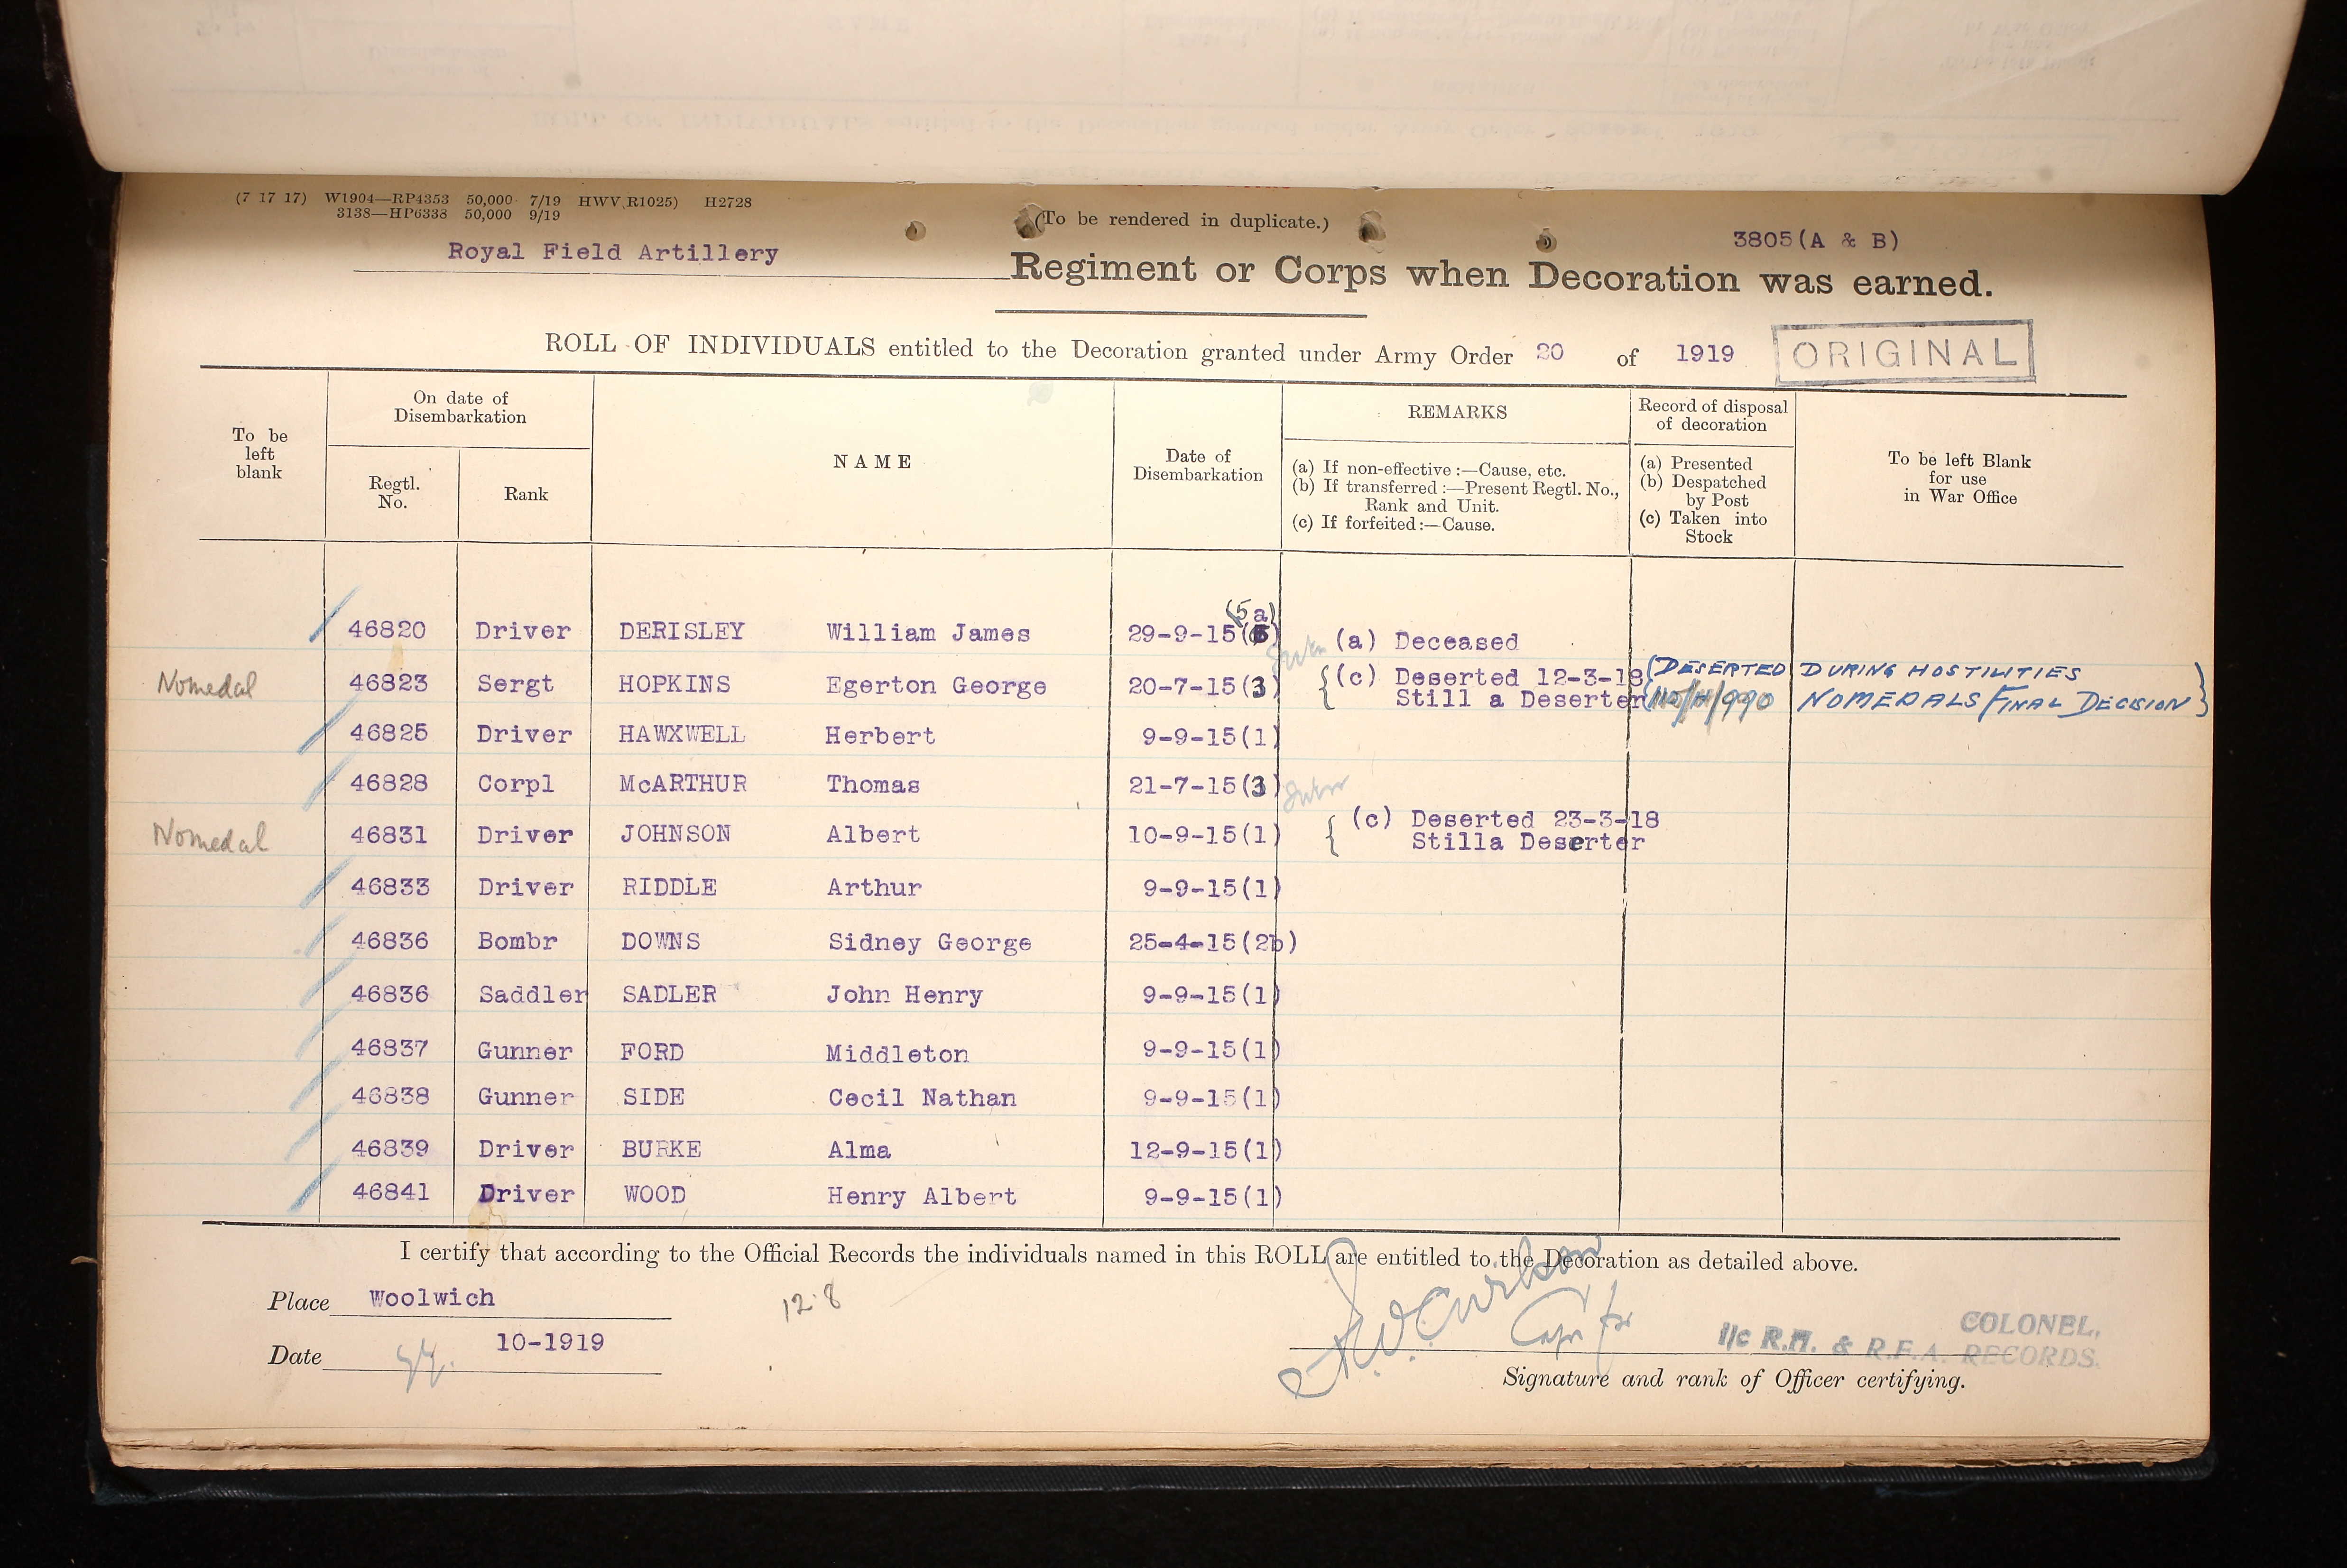 (7 17 17) W1904—RP4353 50,000 7/19 HWV R1025) H2728
3138—HP6338 50,000 9/19
(To be rendered in duplicate.)
3805(A & B)
Royal Field Artillery Regiment or Corps when Decoration was earned.
ROLL OF INDIVIDUALS entitled to the Decoration granted under Army Order 20 of 1919
ORIGINAL
To be
left
blank
On date of
Disembarkation
Regtl.
No.
Rank
NAME
Date of
Disembarkation
REMARKS
(a) If non-effective :—Cause, etc.
(b) If transferred :—Present Regtl. No.,
Rank and Unit.
(c) If forfeited :—Cause.
Record of disposal
of decoration
(a) Presented
(b) Despatched
by Post
(c) Taken into
Stock
To be left Blank
for use
in War Office
(5a)
46820 Driver DERISLEY William James 29-9-15 (a) Deceased
Nomedal 46823 Sergt HOPKINS Egerton George 20-7-15(3) (c) Deserted 12-3-18 (DESERTED DURING HOSTILITIES
Still a Deserter /990 NOMEDALS/FINAL DECISION)
46825 Driver HAWXWELL Herbert 9-9-15(1)
46828 Corpl McARTHUR Thomas 21-7-15(3)
Nomedal 46831 Driver JOHNSON Albert 10-9-15(1) (c) Deserted 23-3-18
Stilla Deserter
46833 Driver RIDDLE Arthur 9-9-15(1)
46836 Bombr DOWNS Sidney George 25-4-15(2b)
46836 Saddler SADLER John Henry 9-9-15(1)
46837 Gunner FORD Middleton 9-9-15(1)
46838 Gunner SIDE Cecil Nathan 9-9-15(1)
46839 Driver BURKE Alma 12-9-15(1)
46841 Driver WOOD Henry Albert 9-9-15(1)
I certify that according to the Official Records the individuals named in this ROLL are entitled to the Decoration as detailed above.
Place Woolwich
12.8
Capt for
COLONEL,
I/c R.H. & R.F.A. RECORDS.
Date 10-1919
Signature and rank of Officer certifying.